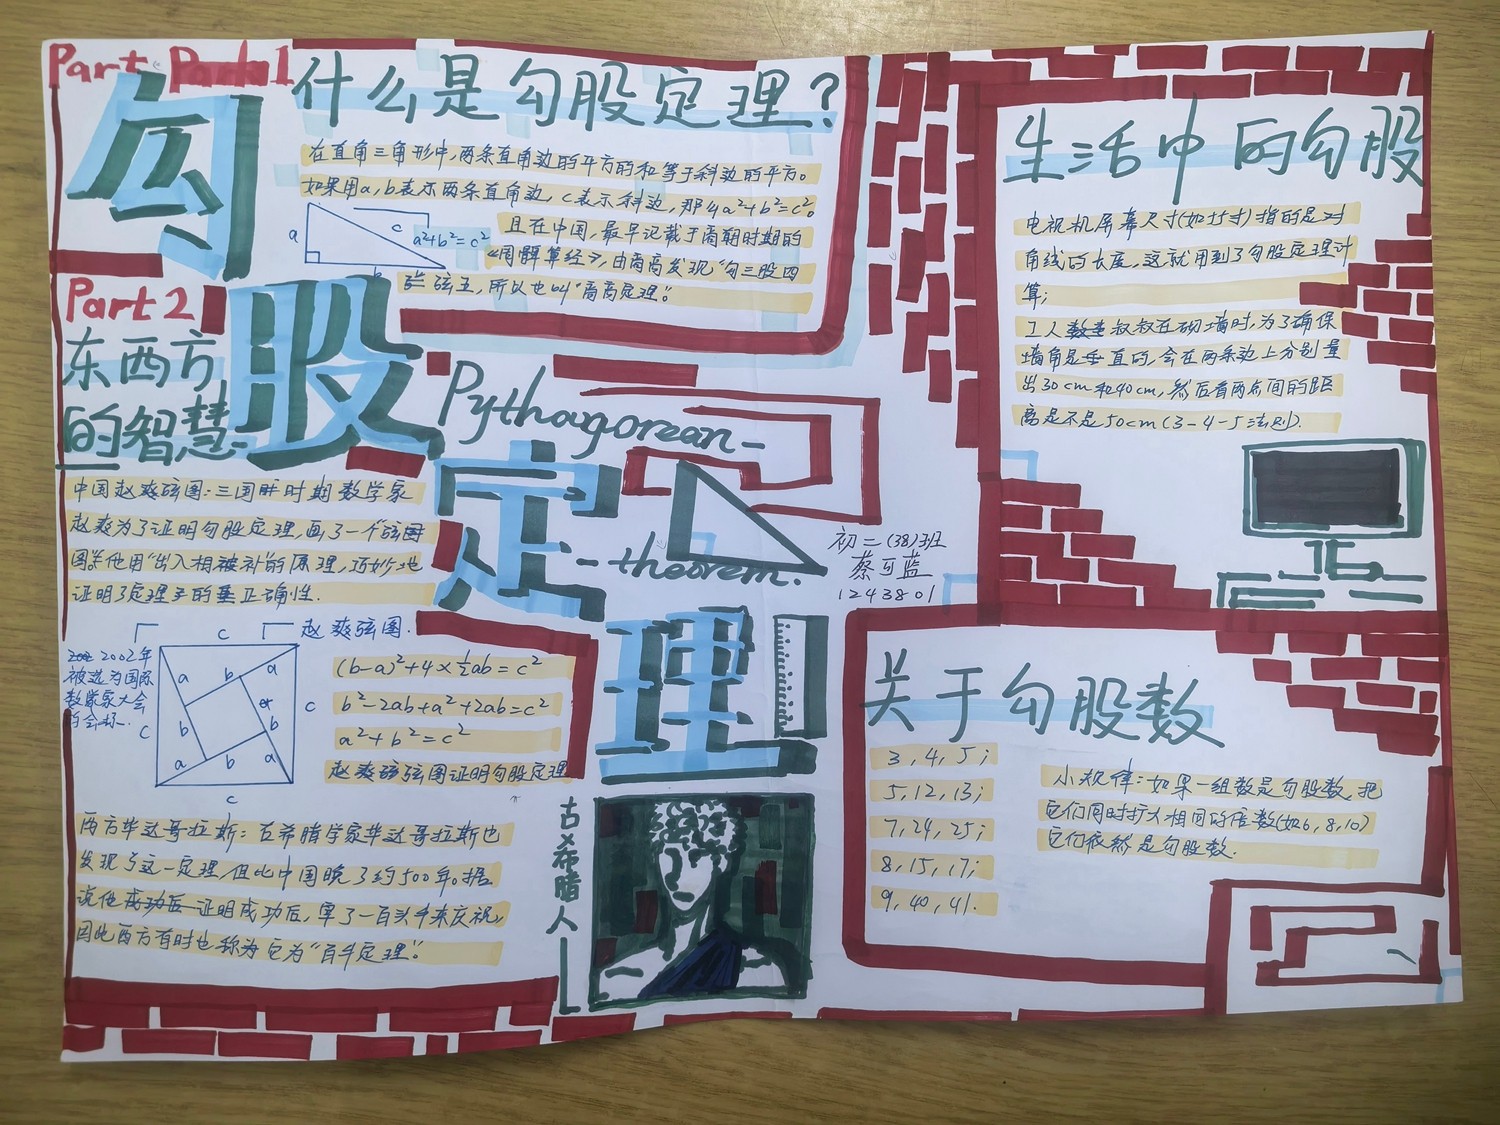 Part Part 1
勾
股
定
理
什么是勾股定理?
在直角三角形中,两条直角边的平方的和等于斜边的平方。
如果用a,b表示两条直角边,c表示斜边,那么a²+b²=c²。
a
c
b
a²+b²=c²
且在中国,最早记载于商朝时期的
《周髀算经》,由商高发现“勾三股四
弦五,所以也叫“商高定理”。
Part 2
东西方
的智慧
中国赵爽弦图:三国时期数学家
赵爽为了证明勾股定理,画了一个弦图
图。他用“出入相补”的原理,巧妙地
证明了定理的正确性.
赵爽弦图.
2002年
被选为国际
数学家大会
的会标.
c
a
b
a
c
b
b
c
a
b
a
c
(b-a)²+4×½ab=c²
b²-2ab+a²+2ab=c²
a²+b²=c²
赵爽弦图证明勾股定理
西方毕达哥拉斯:古希腊学家毕达哥拉斯也
发现了这一定理,但比中国晚了约500年。据
说他成功后证明成功后,宰了一百头牛来庆祝,
因此西方有时也称为它为“百牛定理”.
Pythagorean-
-theorem.
初二(38)班
蔡可蓝
1243801
古希腊人
生活中的勾股
电视机屏幕尺寸(如75寸)指的是对
角线的长度,这就用到了勾股定理计
算;
工人叔叔在砌墙时,为了确保
墙角是垂直的,会在两条边上分别量
出30cm和40cm,然后看两点间的距
离是不是50cm(3-4-5法则).
关于勾股数
3,4,5;
5,12,13;
7,24,25;
8,15,17;
9,40,41.
小规律:如果一组数是勾股数,把
它们同时扩大相同的倍数(如6,8,10)
它们依然是勾股数.